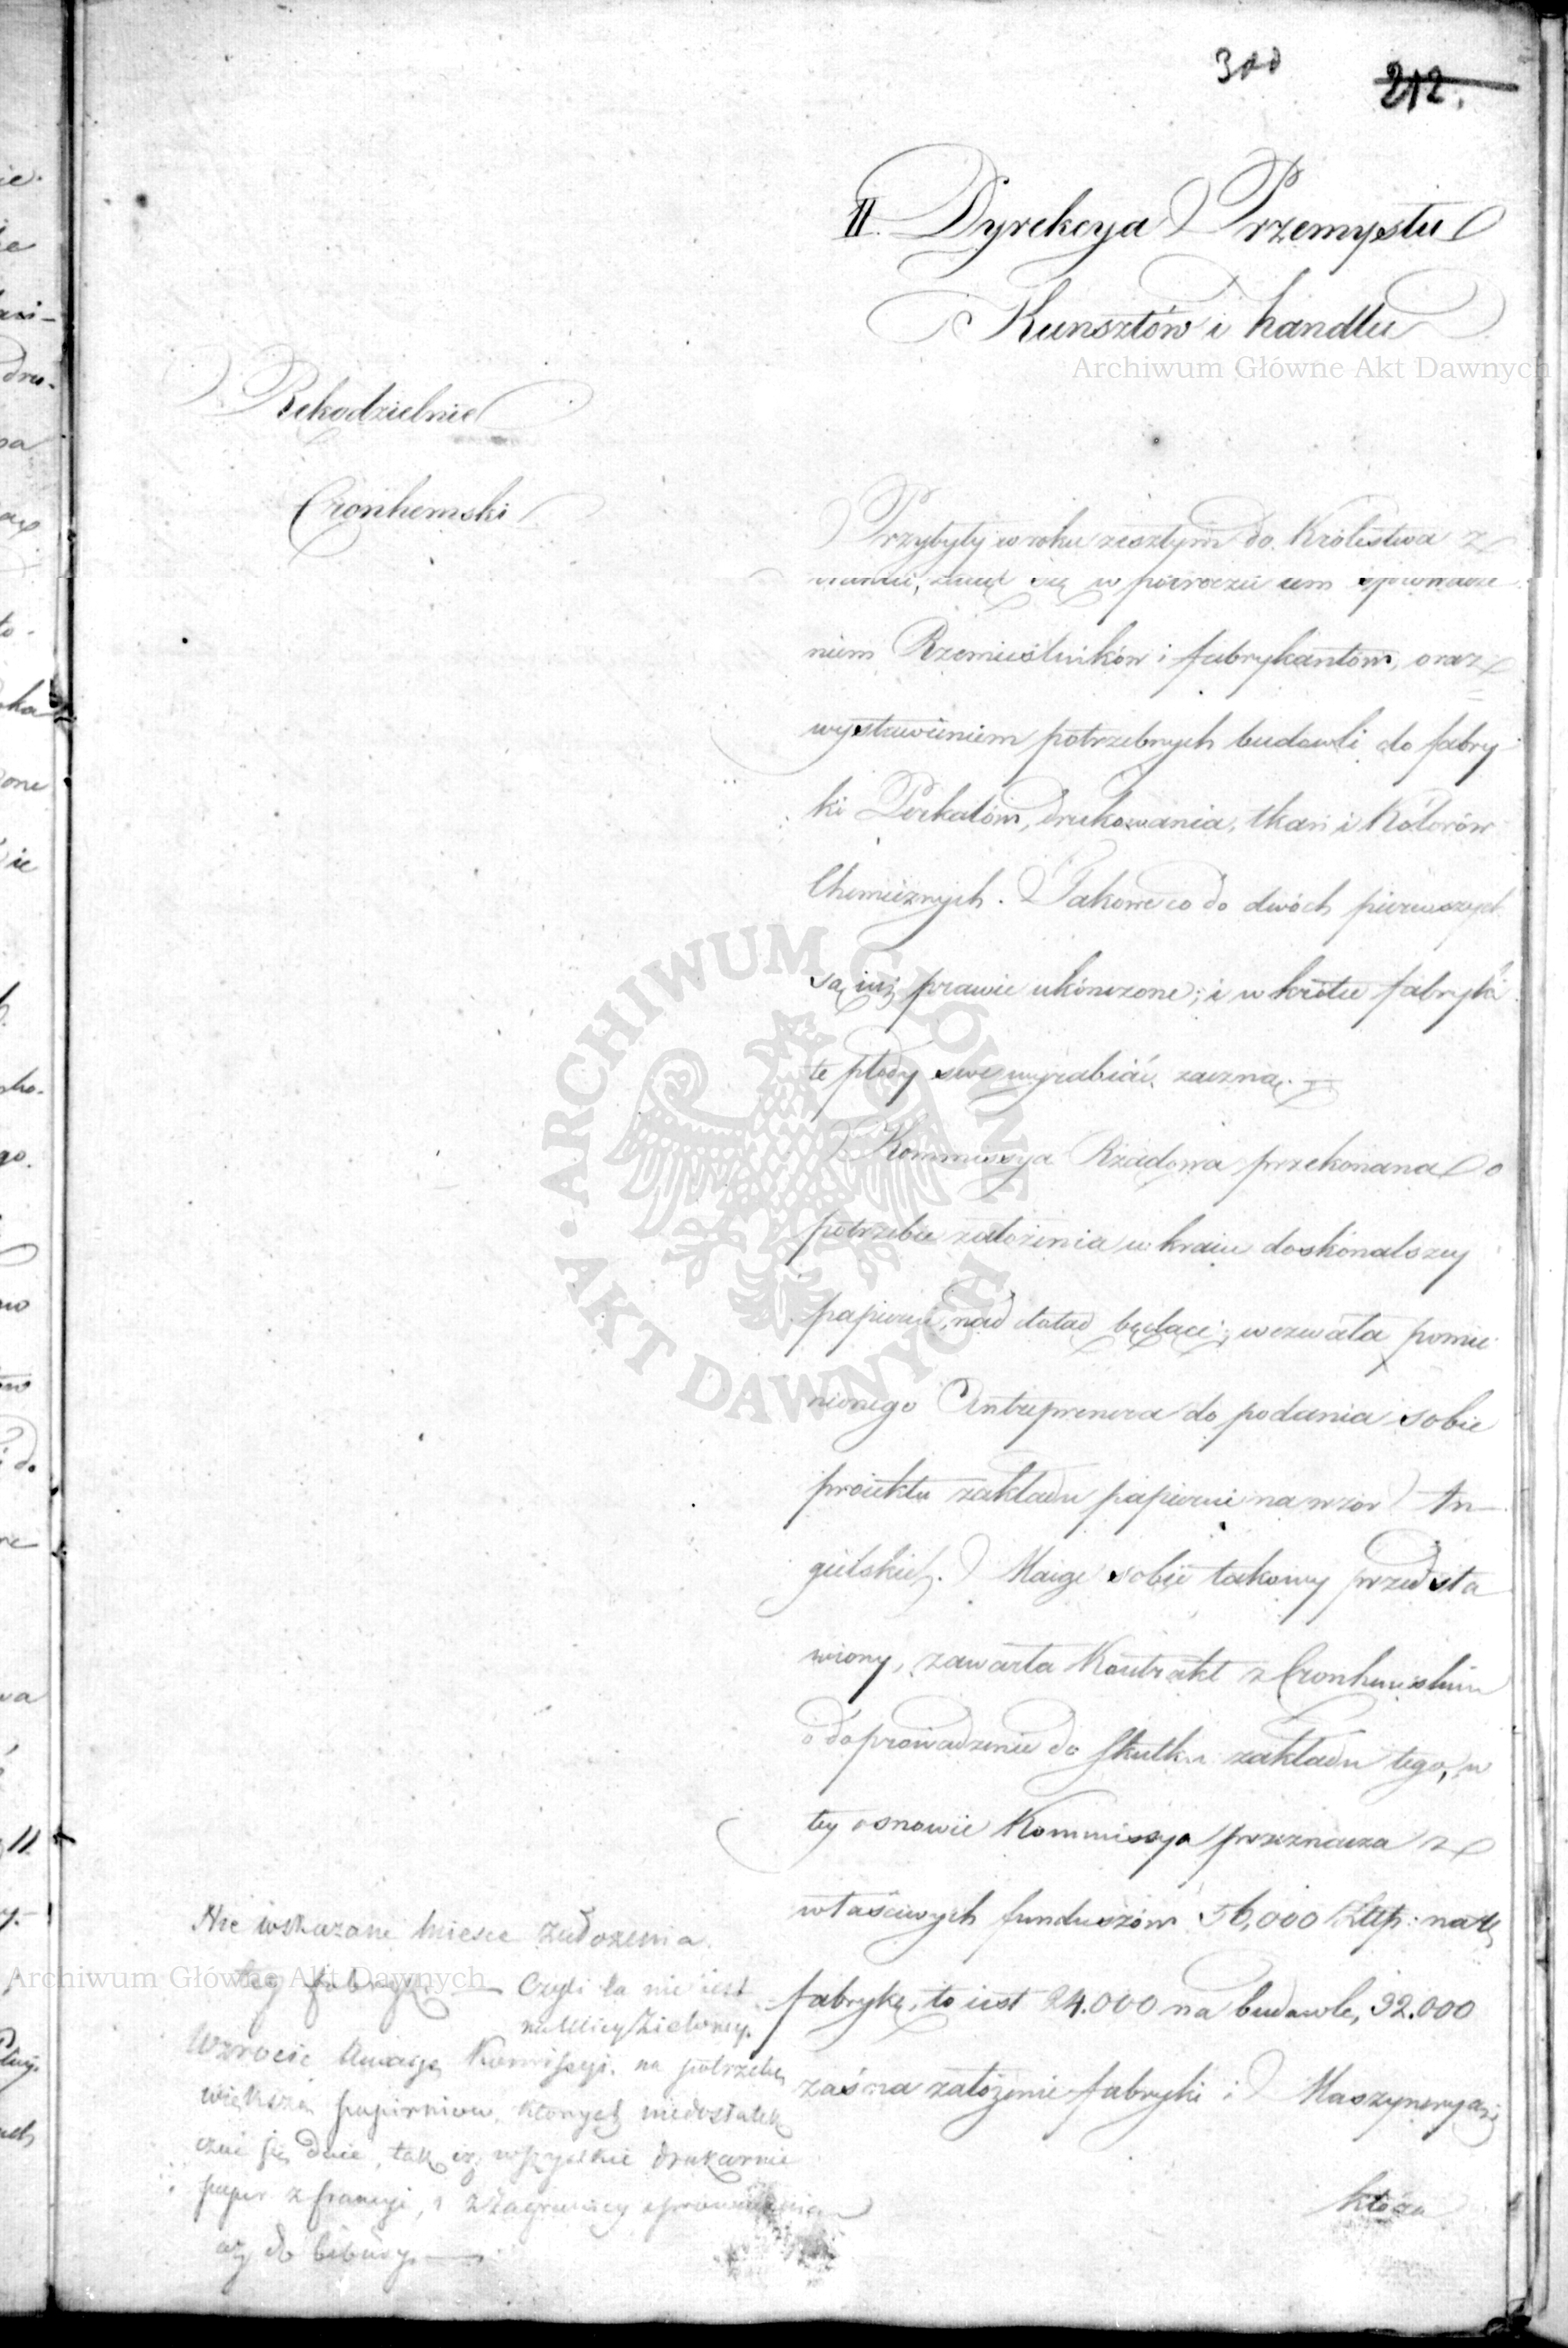 300 212.
II. Dyrekcya Przemysłu
Kunsztów i handlu
Archiwum Główne Akt Dawnych
Rękodzielnie
Cronhemski
Przybyły w roku zeszłym do Królestwa z
się w półroczu tem sprowadze
niem Rzemieślników i fabrykantów, oraz
wystawieniem potrzebnych budowli do fabry
ki Perkalów, drukowania, tkan i Kolorów
Chemicznych. Takowe co do dwóch pierwszych
są iuż prawie ukończone; i w krótce fabryki
te płody swe wyrabiać zaczną.
Kommissya Rządowa przekonana o
potrzebie założenia w kraiu doskonalszey
papierni, nad dotąd będące; wezwała pomie
nionego Entreprenera do podania sobie
proiektu zakładu papierni na wzór An-
gielskich. Maiąc sobie takowy przedsta
wiony, zawarła Kontrakt z Cronhemskim
o doprowadzenie do skutku zakładu tego, w
tey osnowie Kommissya przeznacza z
właściwych funduszów 56,000 Złłp: na tę
fabrykę, to iest 24.000 na budowlę, 32.000
zaś na założenie fabryki i Maszynerya;
która
Nie wskazane mieysce założenia
tey fabryki — Czyli ta nie iest
na Ulicy Zieloney.
Wzrócić Uwagę Kommissyi na potrzebę
większą papierniów, których niedostatek
czuć się daie, tak iż wszystkie drukarnie
papier z francyi, i z zagranicy
aż do bibuły. —
Archiwum Główne Akt Dawnych
ARCHIWUM GŁÓWNE
AKT DAWNYCH